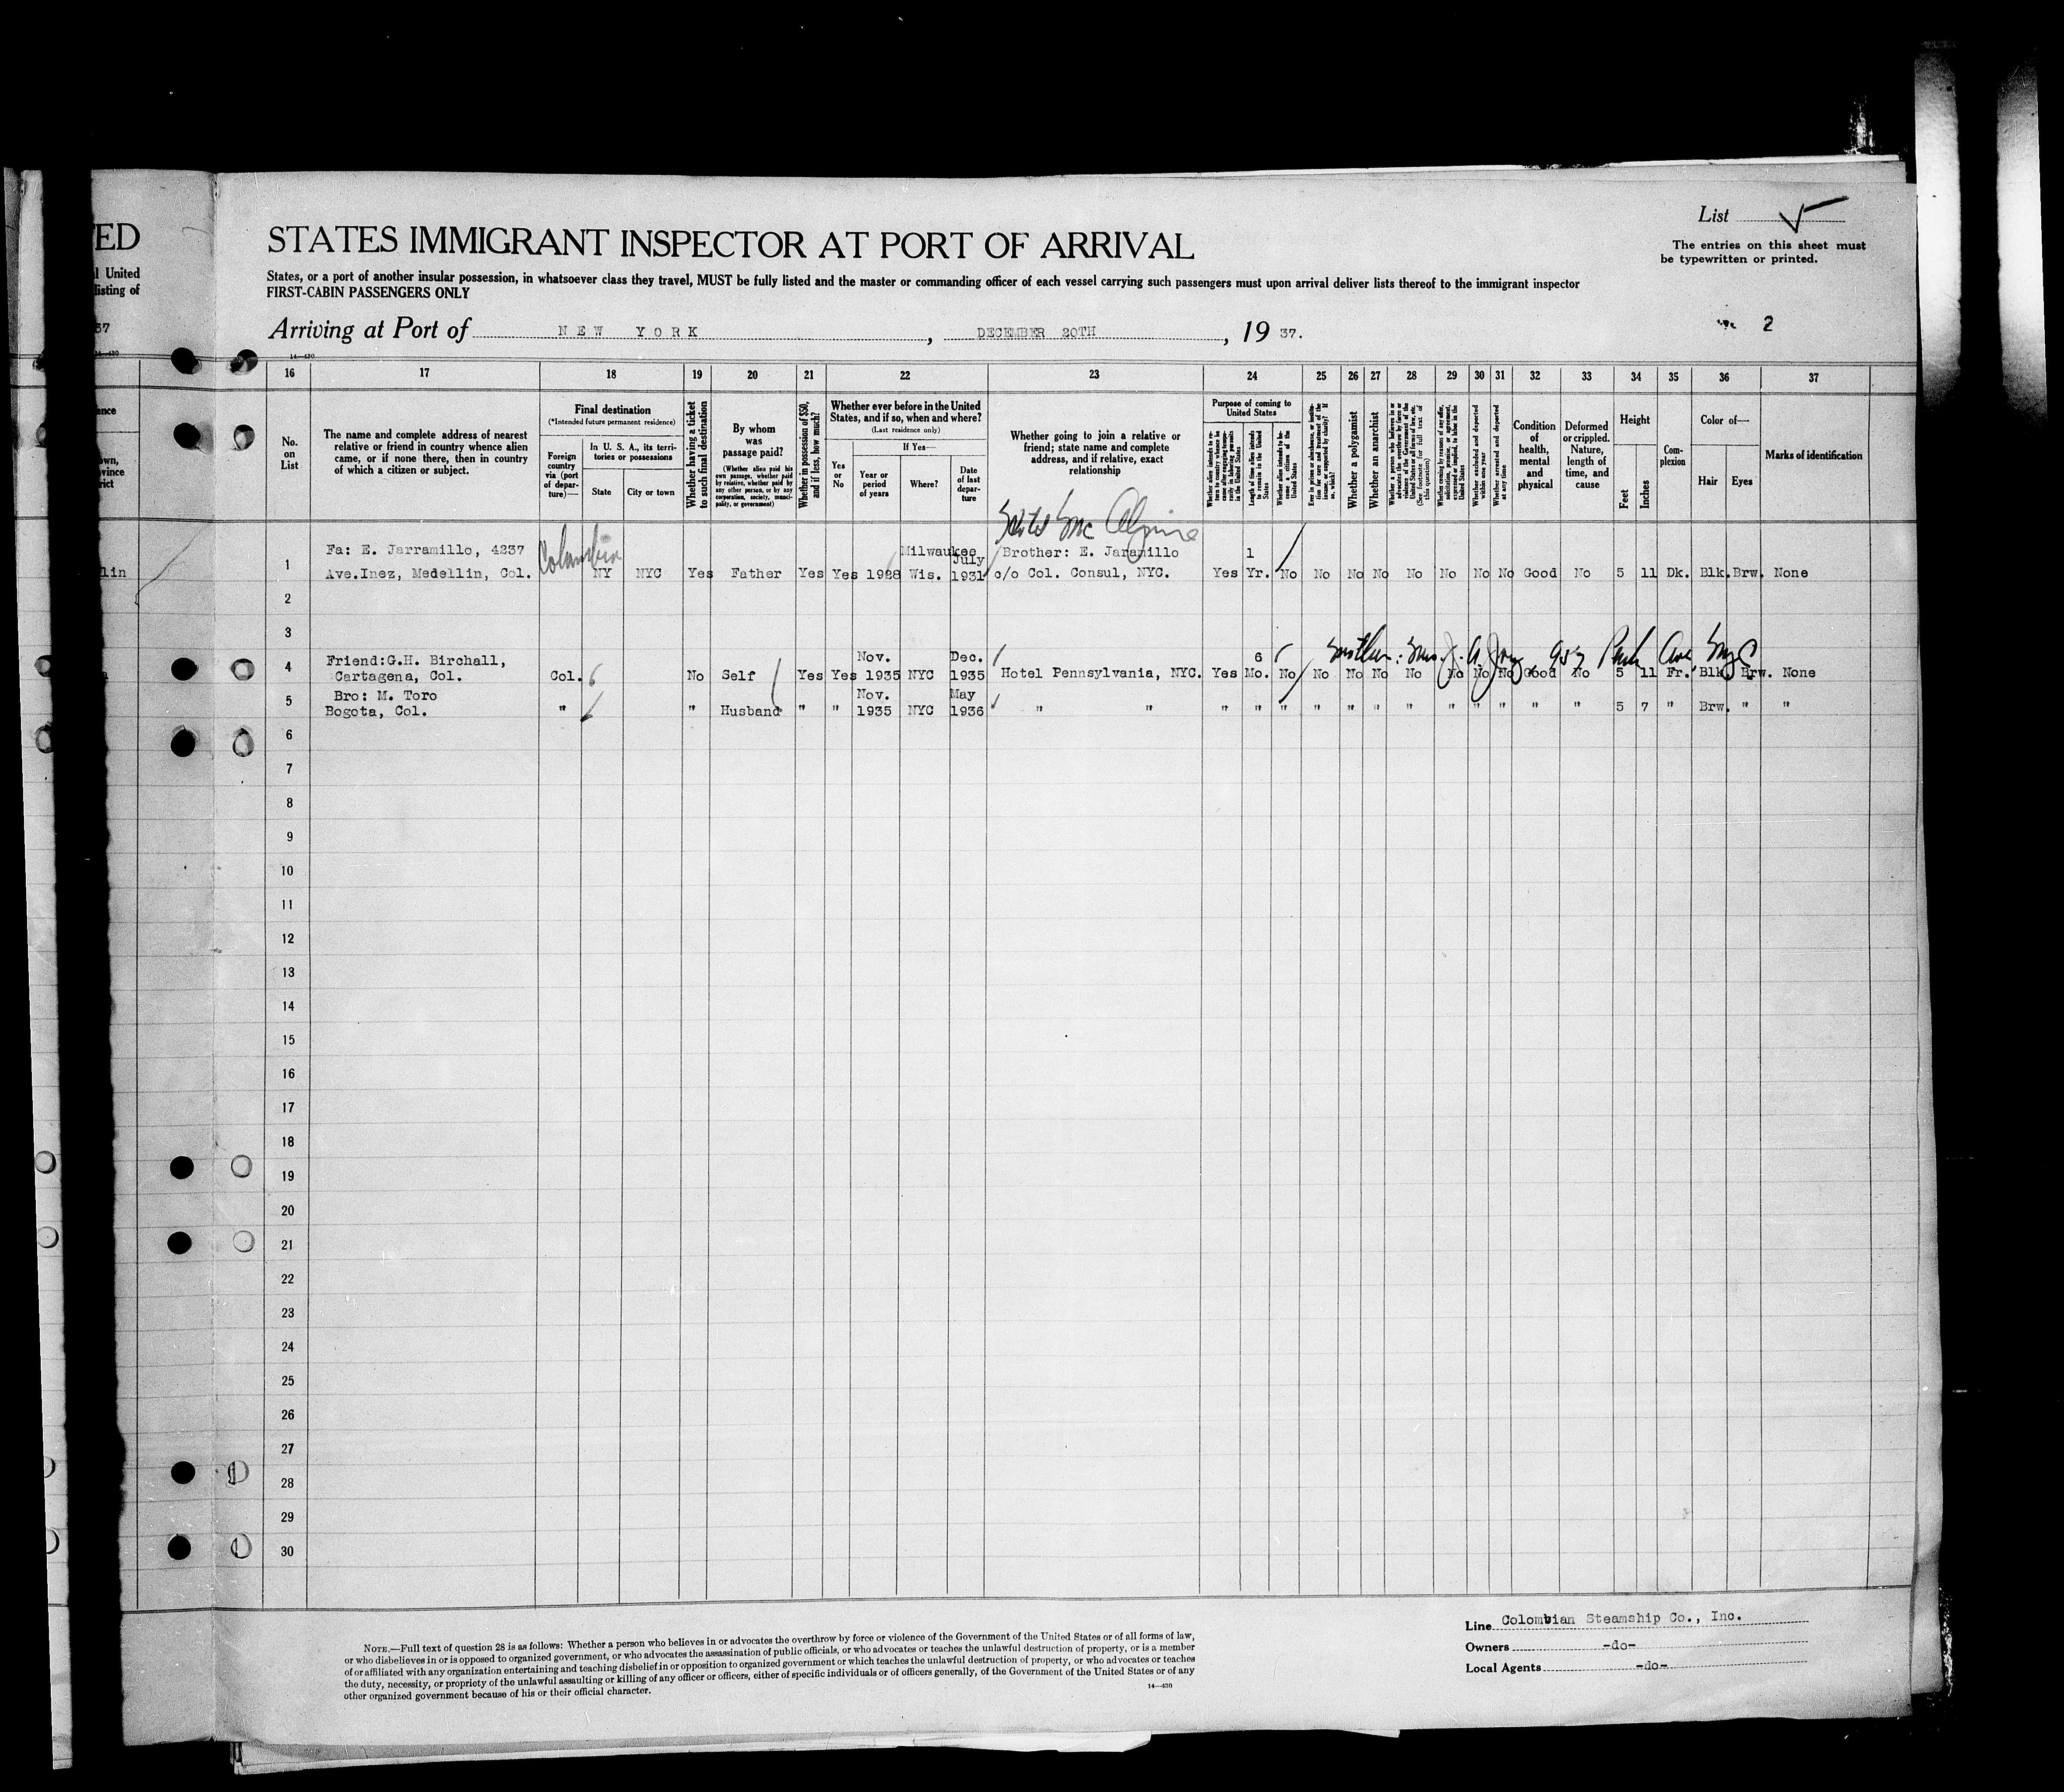 ED
l United
listing of
37
14—430
ence
own,
vince
rict
lin
a
List
The entries on this sheet must
be typewritten or printed.
STATES IMMIGRANT INSPECTOR AT PORT OF ARRIVAL
States, or a port of another insular possession, in whatsoever class they travel, MUST be fully listed and the master or commanding officer of each vessel carrying such passengers must upon arrival deliver lists thereof to the immigrant inspector
FIRST-CABIN PASSENGERS ONLY
Arriving at Port of NEW YORK, DECEMBER 20TH, 19 37.
2
14—430
16 17 18 19 20 21 22 23 24 25 26 27 28 29 30 31 32 33 34 35 36 37
No. on List
The name and complete address of nearest
relative or friend in country whence alien
came, or if none there, then in country
of which a citizen or subject.
Final destination
(*Intended future permanent residence)
Foreign country via (port of departure)—
In U. S. A., its territories or possessions
State
City or town
Whether having a ticket to such final destination
By whom was passage paid?
(Whether alien paid his own passage, whether paid by relative, whether paid by any other person, or by any corporation, society, municipality, or government)
Whether in possession of $50, and if less, how much?
Whether ever before in the United
States, and if so, when and where?
(Last residence only)
Yes or No
If Yes—
Year or period of years
Where?
Date of last departure
Whether going to join a relative or
friend; state name and complete
address, and if relative, exact
relationship
Purpose of coming to United States
Length of time alien intends to remain in the United States
Whether alien intends to become a citizen of the United States
Whether a polygamist
Whether an anarchist
(See footnote for full text of this question)
Whether arrested and deported at any time
Condition of health, mental and physical
Deformed or crippled. Nature, length of time, and cause
Height
Feet
Inches
Complexion
Color of—
Hair
Eyes
Marks of identification
Mc Alpine
1 Fa: E. Jarramillo, 4237
Ave.Inez, Medellin, Col. Colombia NY NYC Yes Father Yes Yes 1928 Milwaukee Wis. July 1931 Brother: E. Jaramillo
c/o Col. Consul, NYC. Yes 1 Yr. No No No No No No No No Good No 5 11 Dk. Blk. Brw. None
2
3
Mother: Mrs. J. A. 957 Park Ave, NYC
4 Friend:G.H. Birchall,
Cartagena, Col. Col. No Self Yes Yes Nov. 1935 NYC Dec. 1935 Hotel Pennsylvania, NYC. Yes 6 Mo. No No No No No No No No Good No 5 11 Fr. Blk. Brw. None
5 Bro: M. Toro
Bogota, Col. " " Husband " " Nov. 1935 NYC May 1936 " " " " " " " " " " " " " " 5 7 " Brw. " "
6
7
8
9
10
11
12
13
14
15
16
17
18
19
20
21
22
23
24
25
26
27
28
29
30
NOTE.—Full text of question 28 is as follows: Whether a person who believes in or advocates the overthrow by force or violence of the Government of the United States or of all forms of law,
or who disbelieves in or is opposed to organized government, or who advocates the assassination of public officials, or who advocates or teaches the unlawful destruction of property, or is a member
of or affiliated with any organization entertaining and teaching disbelief in or opposition to organized government or which teaches the unlawful destruction of property, or who advocates or teaches
the duty, necessity, or propriety of the unlawful assaulting or killing of any officer or officers, either of specific individuals or of officers generally, of the Government of the United States or of any
other organized government because of his or their official character.
14—430
Line Colombian Steamship Co., Inc.
Owners -do-
Local Agents -do-